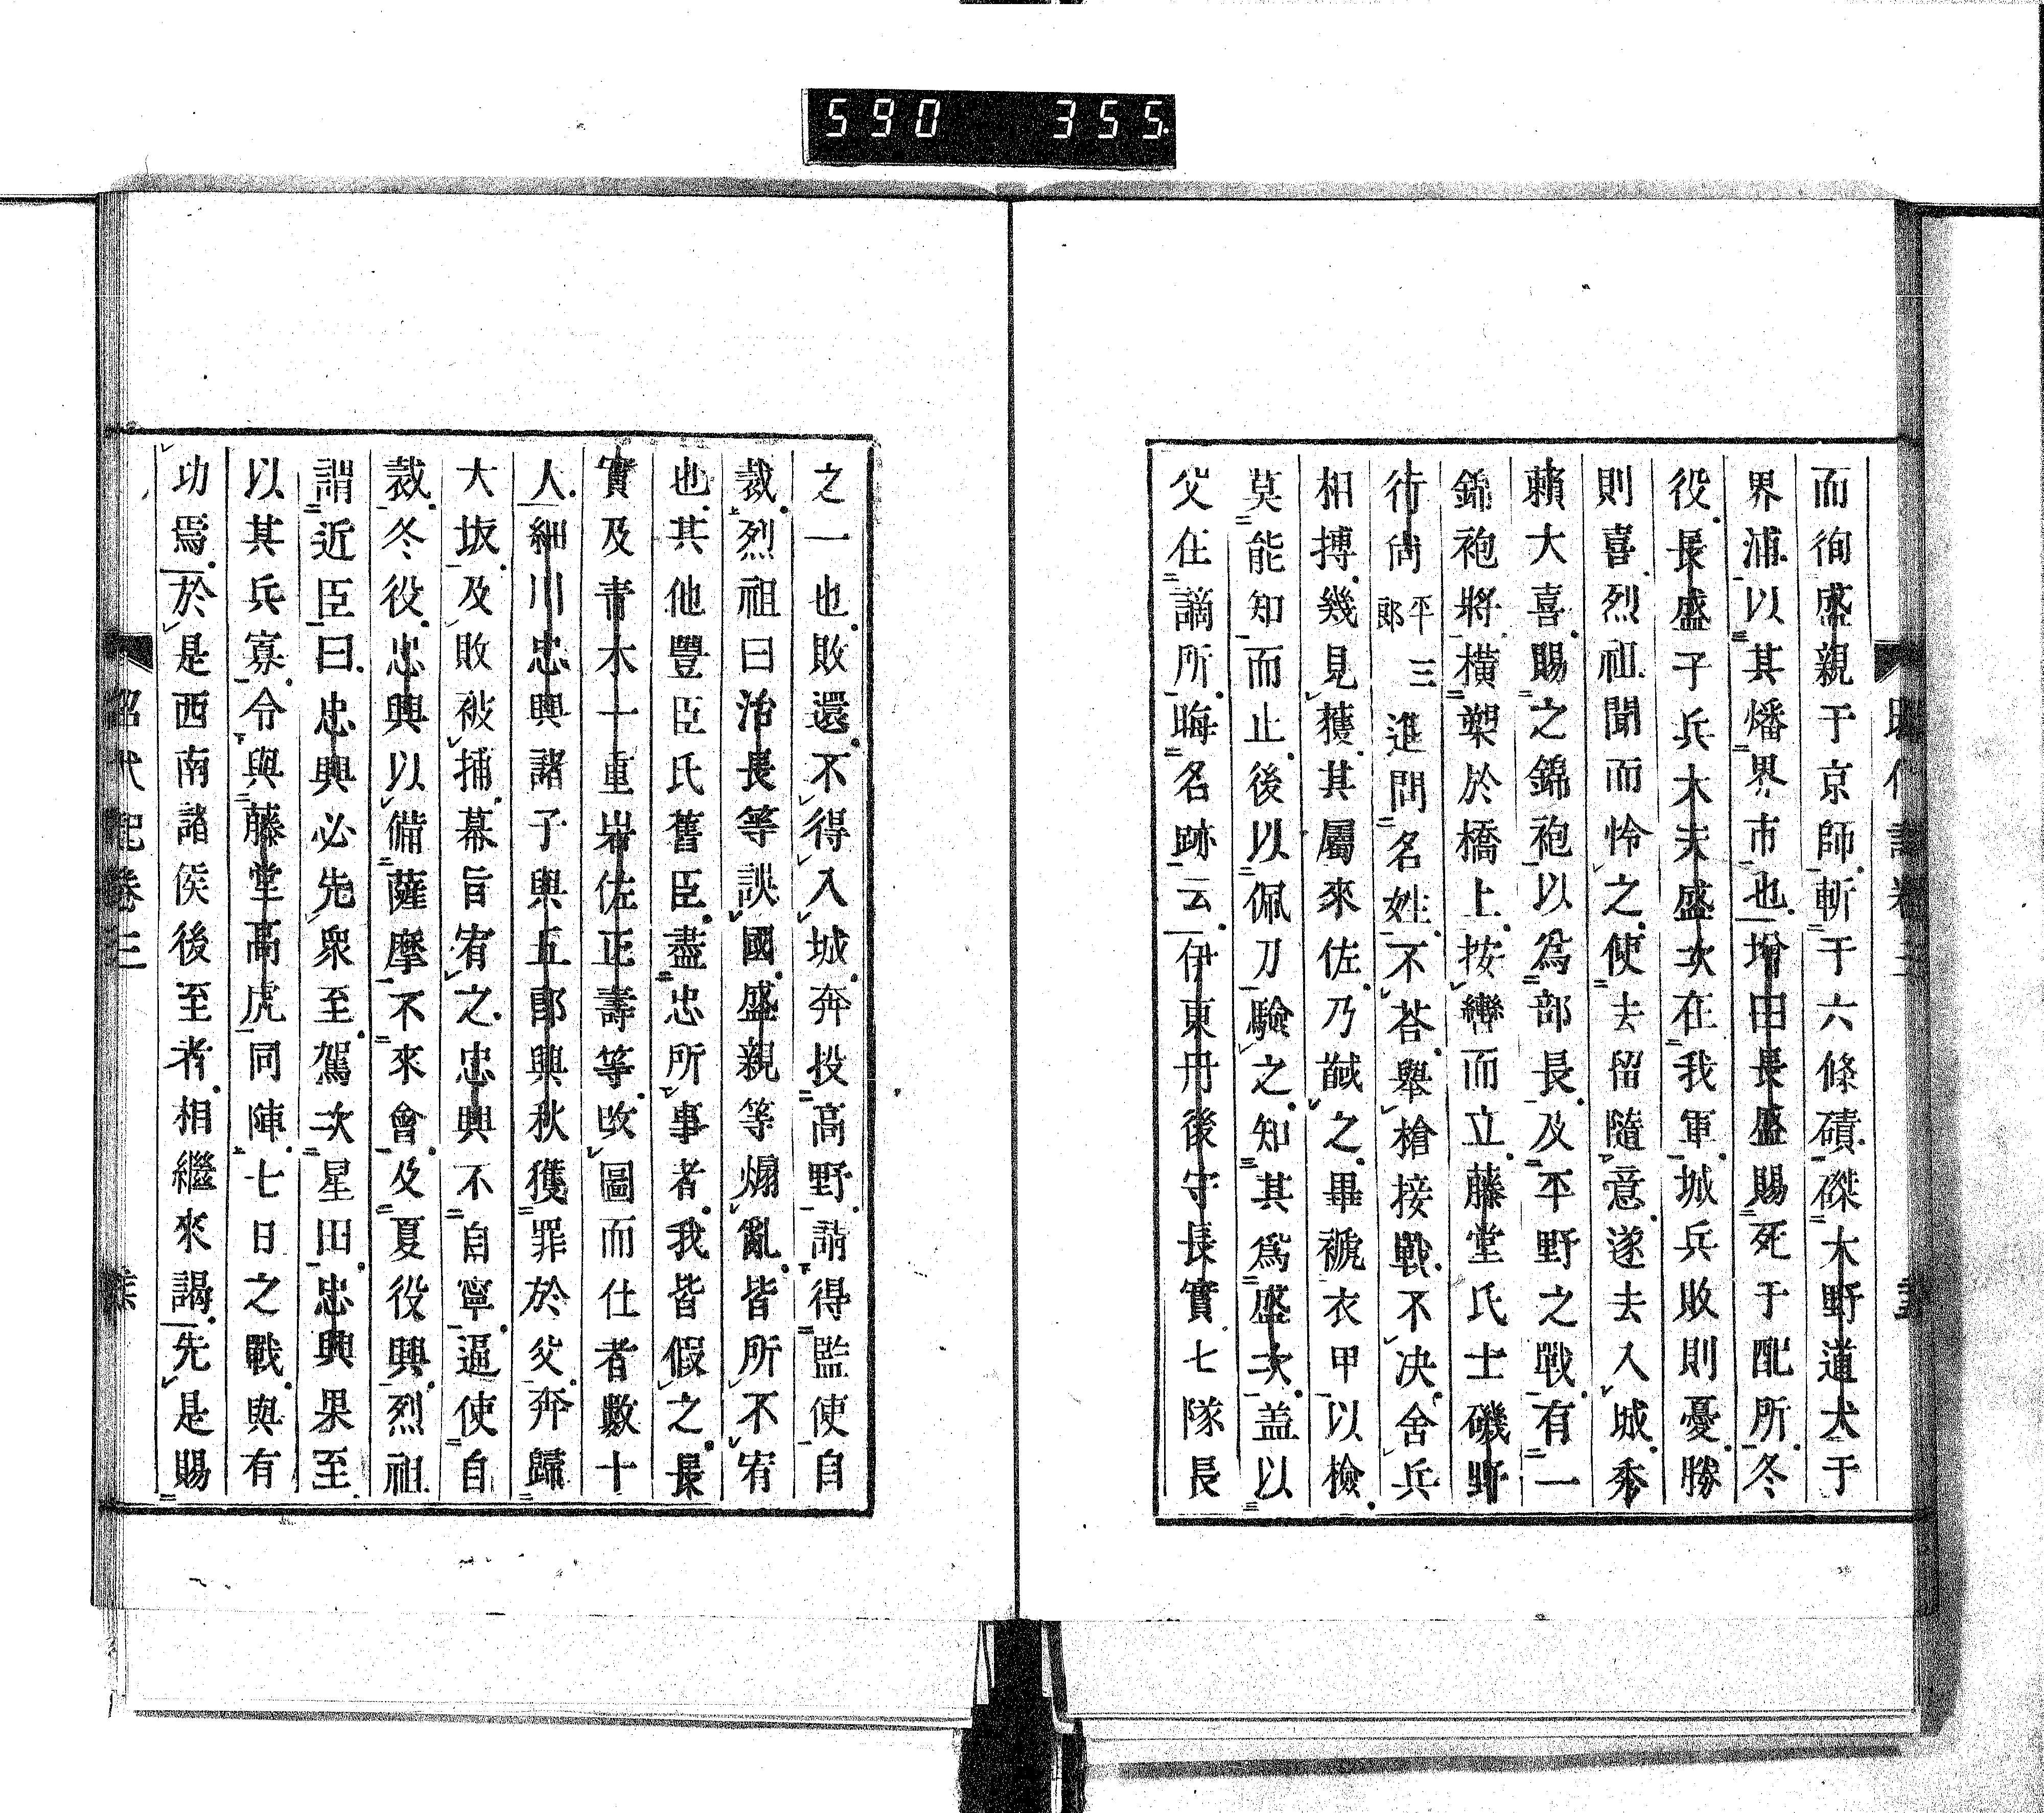 590 355
而徇盛親于京師斬于六條磧磔大野道犬于
界浦以其燔界市也増田長盛賜死于配所冬
役長盛子兵大夫盛次在我軍城兵敗則憂勝
則喜烈祖聞而怜之使去留隨意遂去入城秀
賴大喜賜之錦袍以為部長及平野之戰有一
錦袍將橫槊於橋上按轡而立藤堂氏士磯野
行尚平三郎進問名姓不荅舉槍接戰不决舍兵
相搏幾見獲其屬來佐乃馘之畢褫衣甲以檢
莫能知而止後以佩刀驗之知其爲盛次盖以
父在謫所晦名跡云伊東丹後守長實七隊長
之一也敗還不得入城奔投高野請得監使自
裁烈祖曰治長等誤國盛親等煽亂皆所不宥
也其他豐臣氏舊臣盡忠所事者我皆假之長
實及青木十重岩佐正壽等改圖而仕者數十
人細川忠興諸子與五郎興秋獲罪於父奔歸
大坂及敗被捕幕旨宥之忠興不自寧逼使自
裁冬役忠興以備薩摩不來會及夏役興烈祖
謂近臣曰忠興必先衆至駕次星田忠興果至
以其兵寡令與藤堂高虎同陣七日之戰與有
功焉於是西南諸侯後至者相繼來謁先是賜
昭代記卷三